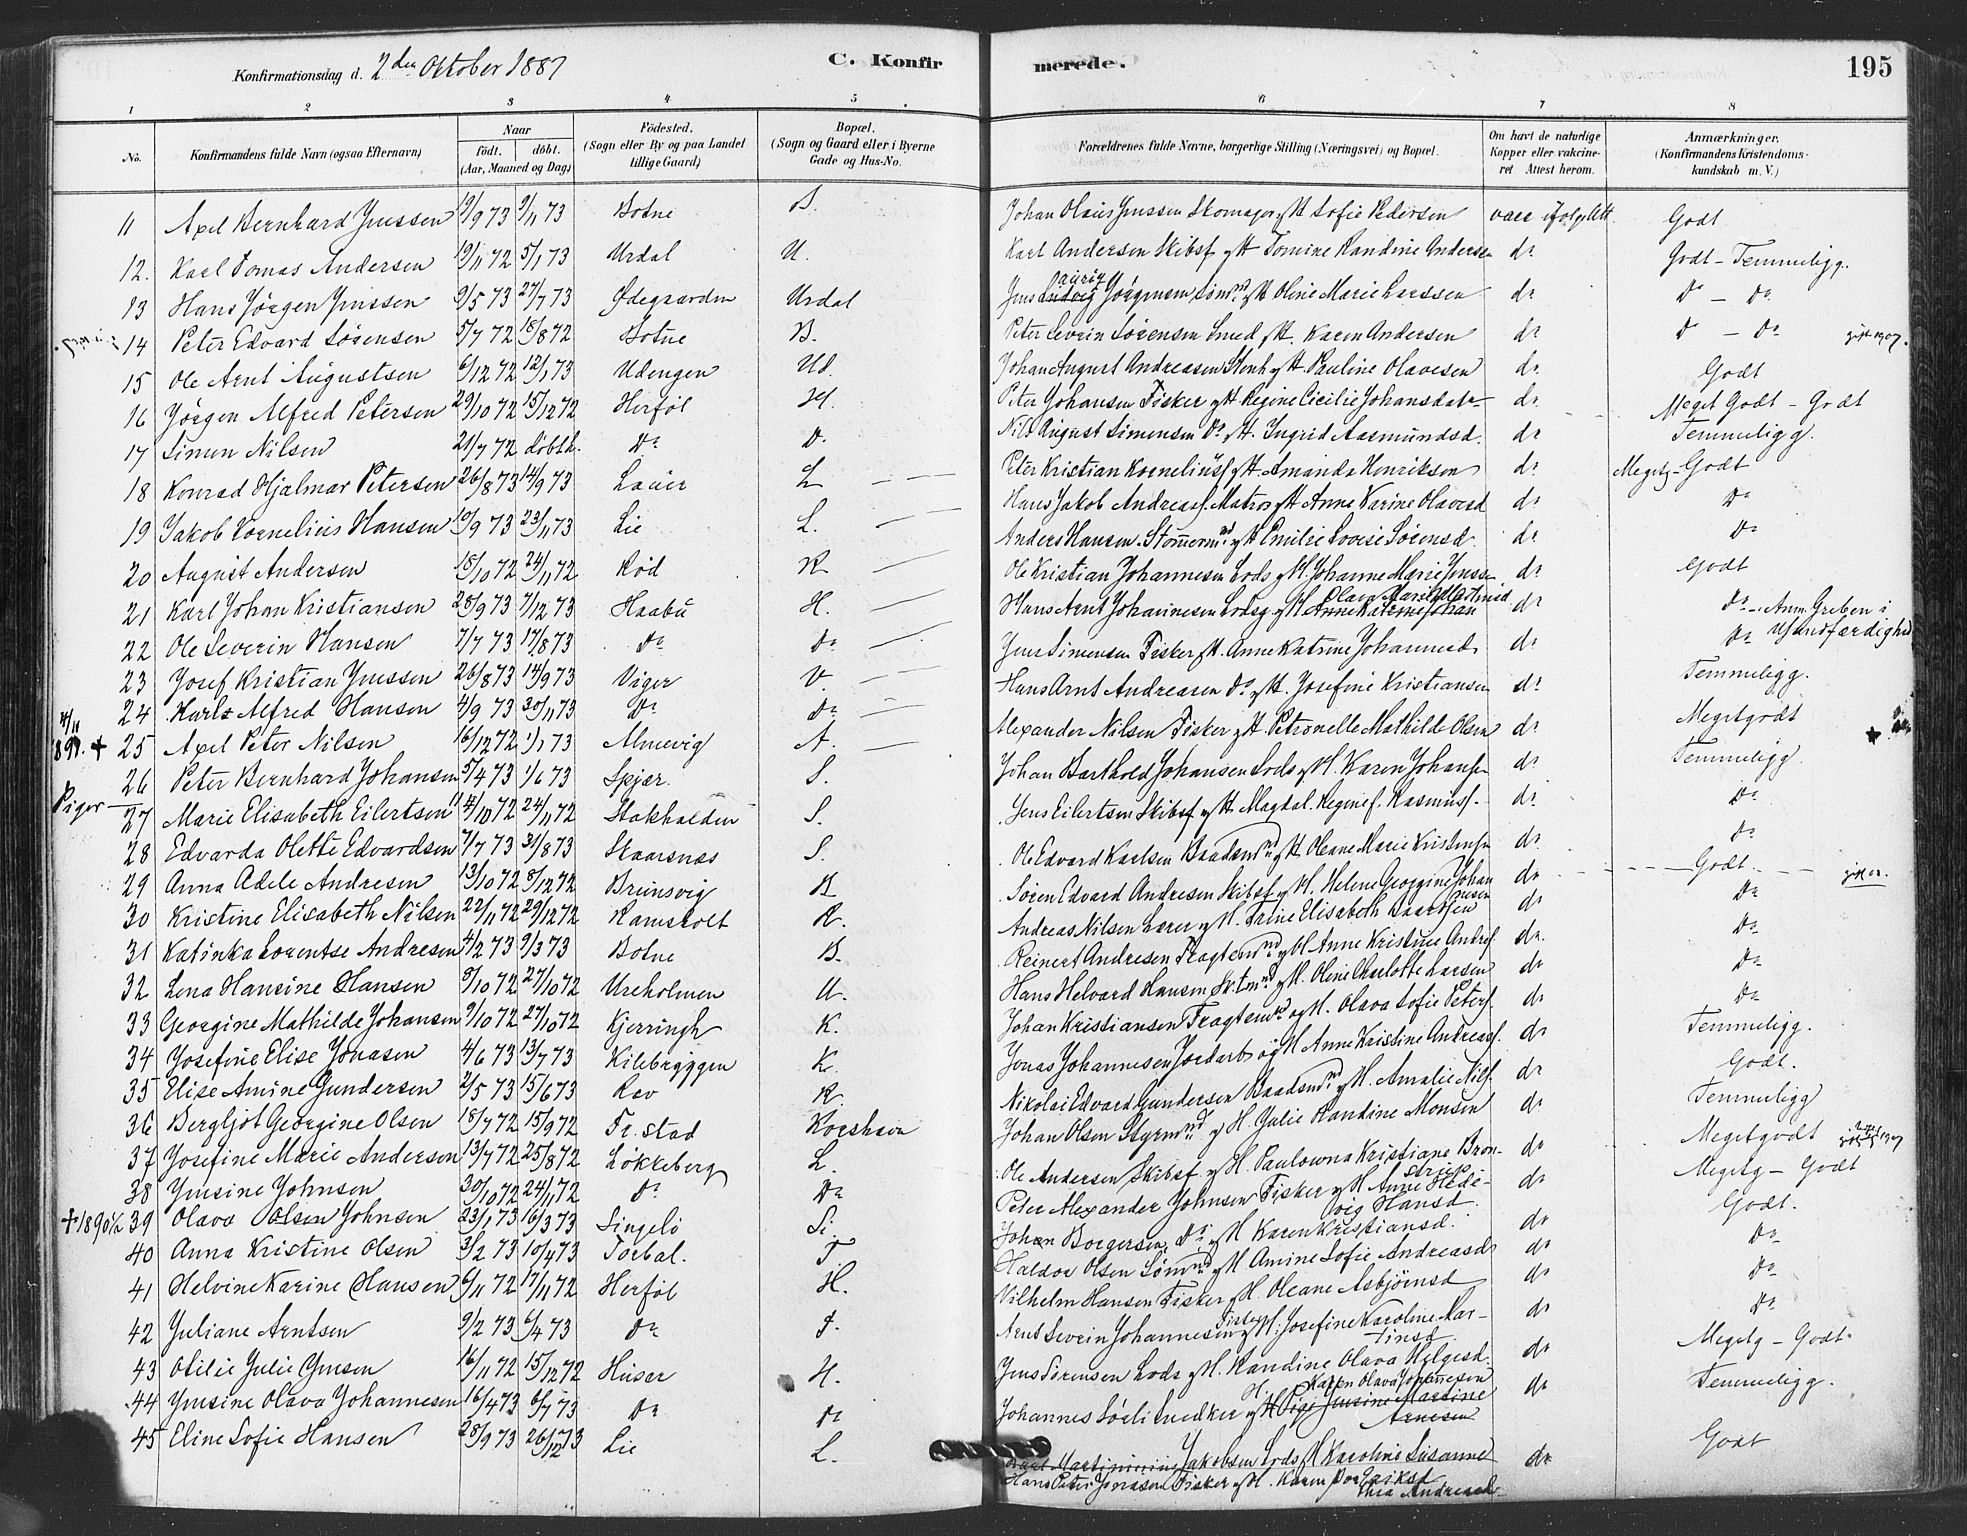 Konfirmationsdag d. 2den Oktober 1887
C. Konfir
merede.
195
1 2 3 4 5 6 7 8
No. Konfirmandens fulde Navn (ogsaa Efternavn) Naar født. døbt. (Aar, Maaned og Dag) Fødested. (Sogn eller By og paa Landet tillige Gaard) Bopæl. (Sogn og Gaard eller i Byerne Gade og Hus-No. Forældrenes fulde Navne, borgerlige Stilling (Næringsvei) og Bopæl. Om havt de naturlige Kopper eller vakcineret Attest herom. Anmærkninger. (Konfirmandens Kristendomskundskab m. V.)
11 Axel Bernhard Jenssen 19/9 73 9/11 73 Botne B. Johan Olaus Jenssen Skomager og H Sofie Pedersen vacc ifølge Att. Godt
12. Karl Tomas Andersen 19/11 72 5/1 73 Urdal U. Karl Andersen Skibsf og H Tomine Randine Andersen do Godt - Temmeligg.
13 Hans Jørgen Jenssen 9/5 73 27/7 73 Ødegaarden Urdal Jens Lauriz Jørgensen Sømd og H Oline Marie Larssen do Do - Do
14 Peter Edvard Sørensen 5/7 72 18/8 72 Botne B. Peter Severin Sørensen Smed og H. Karen Andersen do Do - Do gift 1907.
15 Ole Arnt Augustsen 6/12 72 12/1 73 Udengen Ud. Johan August Andreasen Stenh og H Pauline Olavesen do Godt
16 Jørgen Alfred Petersen 29/10 72 15/12 72 Herføl H. Peter Johansen Fisker og H Regine Cicilie Johansdatr do Meget Godt - Godt
17 Simon Nilsen 21/7 72 døbt h. Do D. Nils August Simensen Do og H. Ingrid Aasmundsd. do Temmeligg.
18 Konrad Hjalmar Petersen 26/8 73 14/9 73 Lauer L Peter Kristian Kornelius f og H Amanda Henriksen do Megetg - Godt
19 Jakob Kornelius Hansen 19/9 73 23/11 73 Lie L. Hans Jakob Andreasf. Matros og H Anne Karine Olavesd do Do
20 August Andersen 18/10 72 24/11 72 Rød R Anders Hansen Stømermd og H Emilie Lovise Sørensd. do Do
21 Karl Johan Kristiansen 28/9 73 7/12 73 Haabu H. Ole Kristian Johannesen Lods og H. Johanne Marie Jenss. do Godt
22 Ole Severin Hansen 7/7 73 17/8 73 Do Do Hans Arnt Johannesen Lods og H Olava Marie Martinsd do Do - Anm. Greben i Usandfærdighed
23 Josef Kristian Jenssen 26/8 73 14/9 73 Viger V. Jens Simensen Fisker og H. Anne Katrine Johannesd do Do
24 Karl Alfred Hansen 4/9 73 30/11 73 Do Do Hans Arnt Andreasen Do og H. Josefine Kristiansen do Temmeligg.
25 Axel Peter Nilsen 16/12 72 1/1 73 Almevig A. Alexander Nilsen Fisker og H Petronelle Mathilde Olsen do Megetgodt
26 Peter Bernhard Johansen 5/4 73 1/6 73 Spjær. S. Johan Barthold Johansen Lods og H. Karen Johansen do Temmeligg.
Piger
27 Marie Elisabeth Eilertsen 14/10 72 24/11 72 Stokholden S. Jens Eilertsen Skibsf og H Magdal. Regine f. Rasmusf. do Do
28 Edvarda Olette Edvardsen 7/7 73 31/8 73 Skaarsnæs S. Ole Edvard Karlsen Baadsmd og H Oleane Marie Kristensen do Do
29 Anna Adele Andresen 13/10 72 8/12 72 Brunsvig B Søren Edvard Andresen Skibsf og H. Helene Georgine Johannesen do Godt
30 Kristine Elisabeth Nilsen 22/11 72 29/12 72 Ramsholt R. Andreas Nilsen Lærer og H. Trine Elisabeth Baardsen do Do
31 Katinka Lorentse Andresen 4/2 73 9/3 73 Botne B. Reinert Andresen Fragtemnd og H Anne Kristine Andresf. do. Do
32 Lena Hansine Hansen 8/10 72 27/10 72 Ureholmen U. Hans Helvard Hansen Sk.tmnd og H. Oline Charlotte Larsen do Do
33 Georgine Mathilde Johansen 9/10 72 27/10 72 Kjerringh K. Johan Kristiansen Fragtemd og H. Olava Sofie Petersf. do Do
34 Josefine Elise Jonasen 4/6 73 13/7 73 Kilebryggen K. Jonas Johannesen Jordarb og H Anne Kristine Andreasf. do Temmeligg.
35 Elise Amine Gundersen 2/5 73 15/6 73 Rav R Nikolai Edvard Gundersen Baadsmd og H. Amalie Nilsf. do Godt.
36 Bergljot Georgine Olsen 18/7 72 15/9 72 Fr.stad Korshavn Johan Olsen Styrmnd og H. Julie Randine Monsen do Temmeligg
37 Josefine Marie Andersen 13/7 72 25/8 72 Løkkeberg L. Ole Andersen Skibsf. og H. Paulowna Kristiane Bronstrup do Megetgodt
38 Jensine Johnsen 30/10 72 24/11 72 Do Do Peter Alexander Johnsen Fisker og H Anne Hedevig Hansd. do Megetg - Godt
+ 1890 39 Olava Olsen Johnsen 23/1 73 16/3 73 Singelø Si. Johan Borgersen Do og H Karen Kristiansd. do Godt.
40 Anna Kristine Olsen 3/2 73 10/4 73 Torbal. T Haldor Olsen Sømnd og H Amine Sofie Andreasd do Do
41 Helvine Karine Hansen 6/11 72 17/11 72 Herføl H. Vilhelm Hansen Fisker og H. Oleane Asbjørnsd do Do
42 Juliane Arntsen 9/2 73 6/4 73 Do D. Arnt Severin Johannesen Fisker og H. Josefine Karoline Martinsd. do Do
43 Otilie Julie Jensen 16/11 72 15/12 72 Huser H. Jens Sørensen Lods og H. Randine Olava Helgesd. do Megetg - Godt.
44 Jensine Olava Johannesen 16/4 73 6/7 73 Do Do Johannes Sørli Snedker og H Karen Olava Johannesen Pige Jensine Martine Arnesen do Temmeligg.
45 Eline Sofie Hansen 28/9 73 26/12 73 Lie L. Jakobsen Lods og H Karoline Susanne Eriksd do Godt
Hans Peter Jonasen Fisker og H. Karen Dorthea Andreasd.